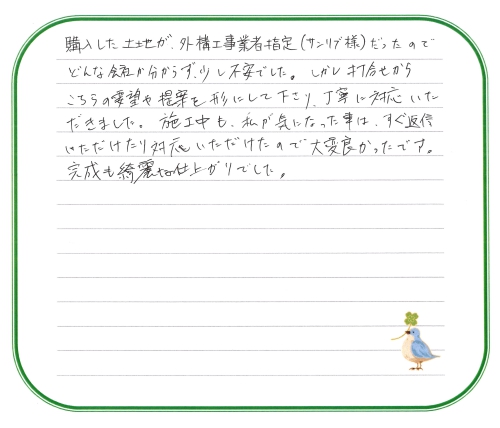 購入した土地が、外構工事業者指定(サンリブ様)だったので
どんな会社か分からず、少し不安でした。しかし打合せから
こちらの要望や提案を形にして下さり、丁寧に対応いた
だきました。施工中も、私が気になった事は、すぐ返信
いただけたり対応いただけたので大変良かったです。
完成も綺麗な仕上がりでした。